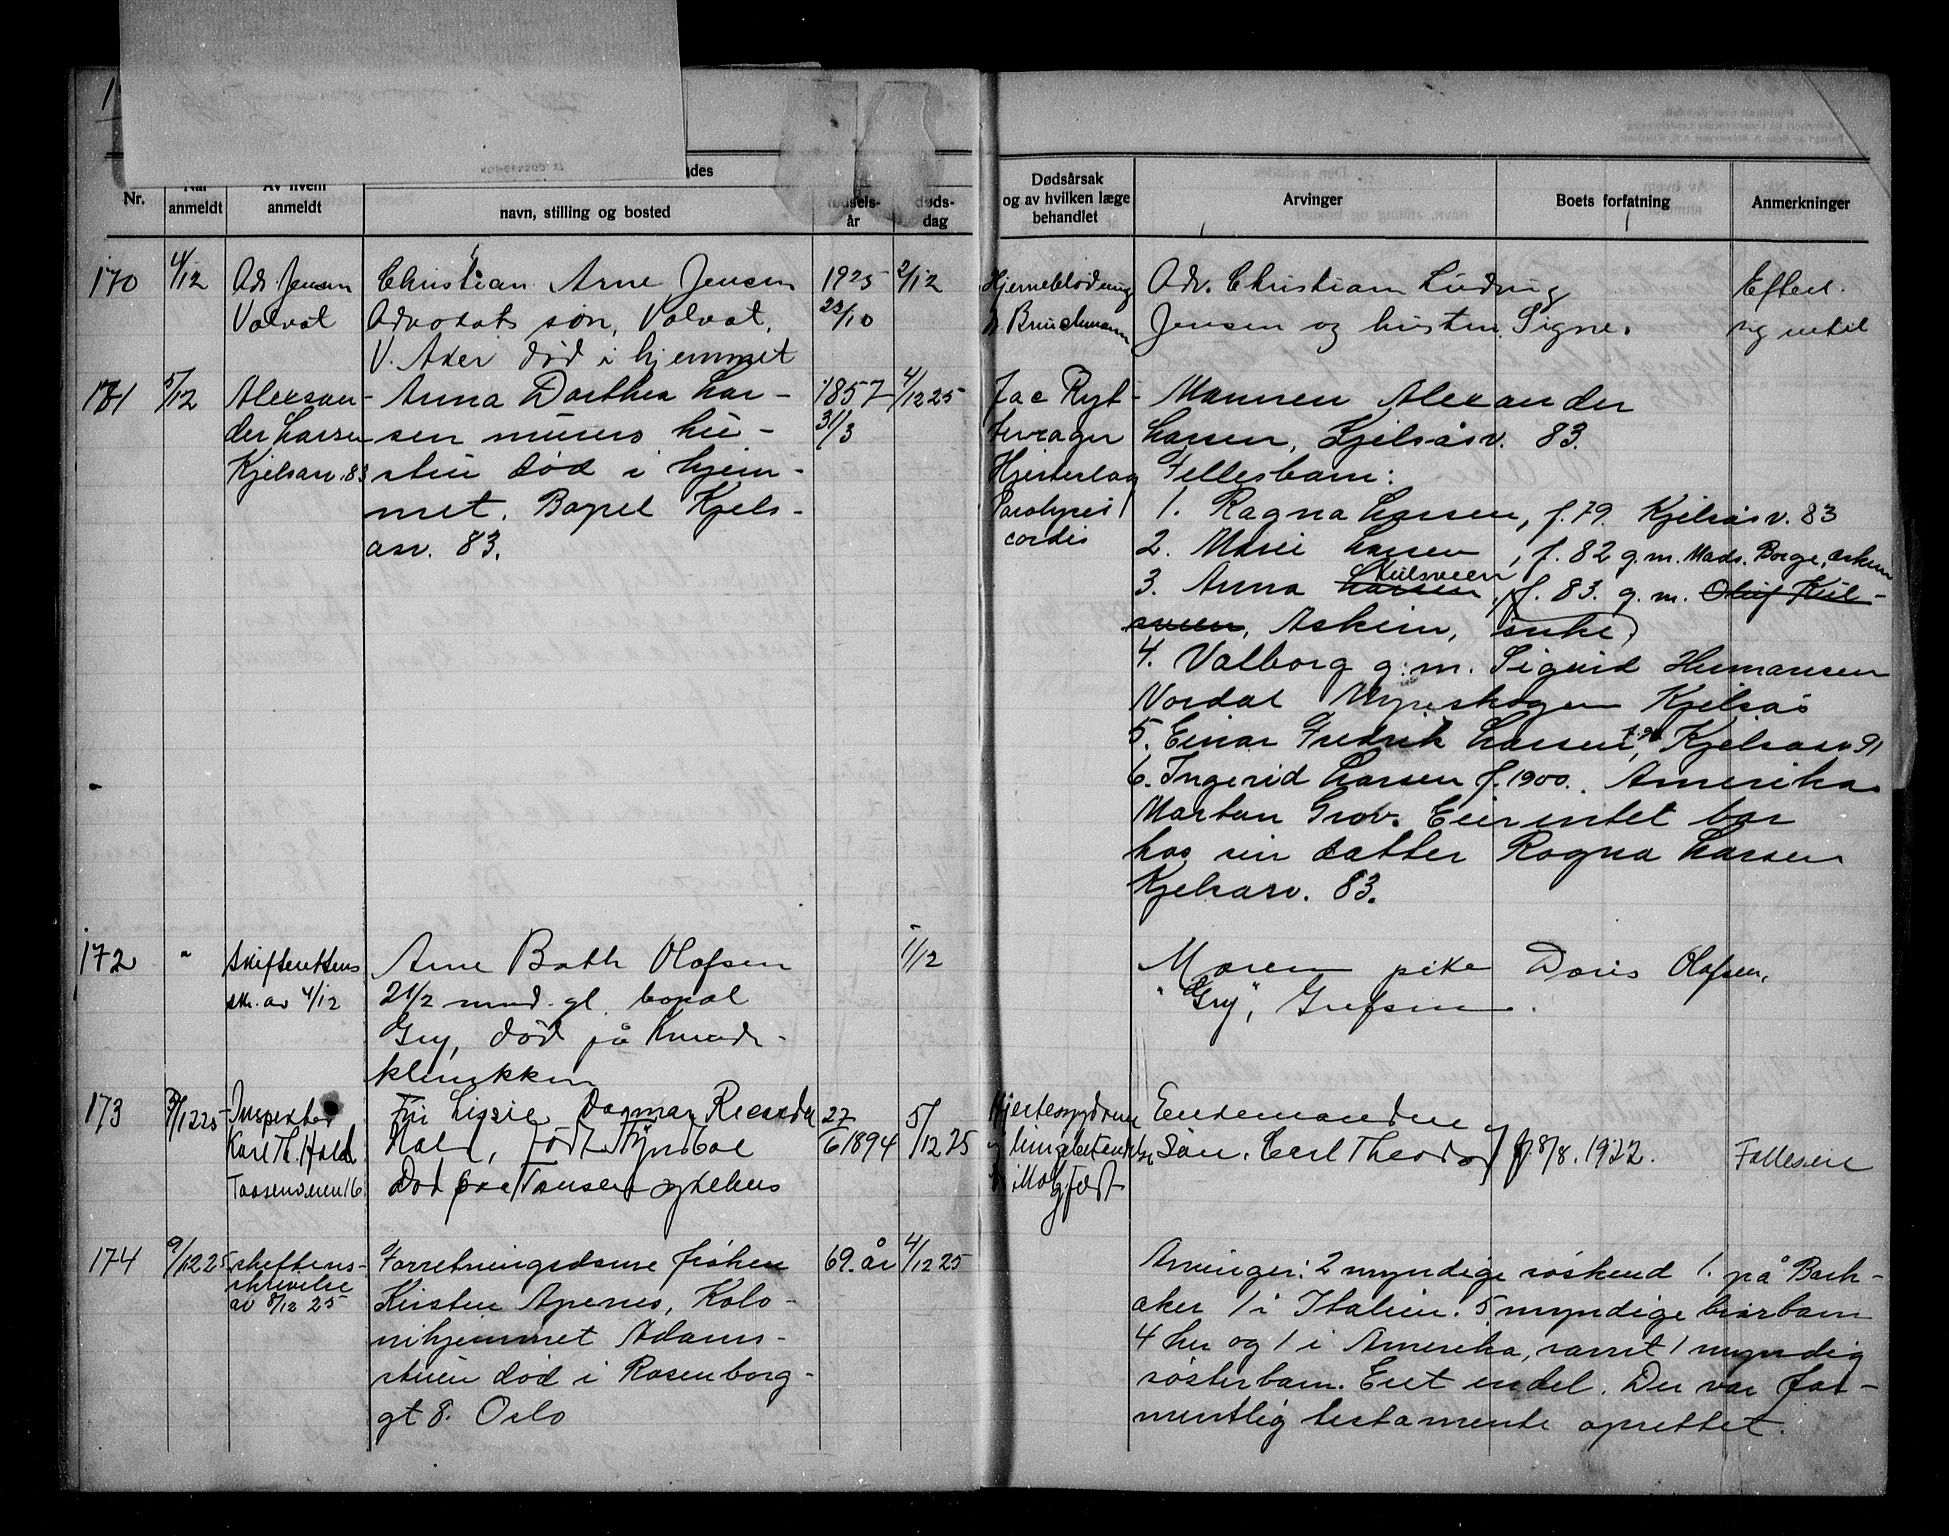 Nr.
anmeldt
Av hvem
anmeldt
navn, stilling og bosted
år
døds-
dag
Dødsårsak
og av hvilken læge
behandlet
Arvinger
Boets forfatning
Anmerkninger
170
4/12
Adv. Jensen
Volvat
Christian Arne Jensen
Advokats søn, Volvat,
V. Aker død i hjemmet
1925
22/10
2/12
Hjerneblødning
Adv. Christian Ludvig
Jensen og hustru Signe.
Efterl.
171
5/12
Alexan-
der Larsen
Kjelsasv. 83
Anna Dorthea Lar-
sen murers hu-
stru død i hjem-
met. Bopel Kjels-
asv. 83.
1857
31/3
4/12 25
Hjerteslag
Paralysis
cordis
Mannen Alexander
Larsen, Kjelsåsv. 83.
Fellesbarn:
1. Ragna Larsen, f. 79. Kjelsåsv. 83
2. Marie Larsen, f. 82 g.m. Mads. Borge, Askim
3. Anna Larsen Kulsveen, f. 83. g.m. Oluf Kul-
sveen, Askim, enke
4. Valborg g.m. Sigurd Hermansen
Nordal Myrerskogen Kjelsås
5. Einar Fredrik Larsen, Kjelsasv 91
6. Ingerid Larsen f. 1900. Amerika
Martan Grov. Eier intet bor
hos sin datter Ragna Larsen
Kjelsasv. 83.
172
"
Skifterettens
skr. av 4/12
Arne Bath Olafsen
2 1/2 mnd. gl. bopæl
Gry, død på Kvinde-
klinikken
1/12
Moren pike Doris Olafsen,
"Gry", Grefsen.
173
7/12 25
Inspektør
Karl Th. Hald
Taasenveien 16
Fru Lissie Dagmar
Hald, født
Død paa Taasen sykehus
27/6 1894
5/12 25
Enkemanden og
Søn. Carl Theodor f. 8/8. 1922.
Felleseie
174
9/12 25
skiftens-
skrivelse
av 8/12 25
Forretningsdame frøken
Kirsten Apenes, Kolo-
nihjemmet Adams-
stuen død i Rosenborg-
gt 8. Oslo
69. år
4/12 25
Arvinger: 2 myndige søskend 1. på Bæk-
aker 1 i Italien. 5 myndige brorbarn
4 her og 1 i Amerika, samt 1 myndig
søsterbarn. Eiet endel. Der var for-
mentlig testamente oprettet.